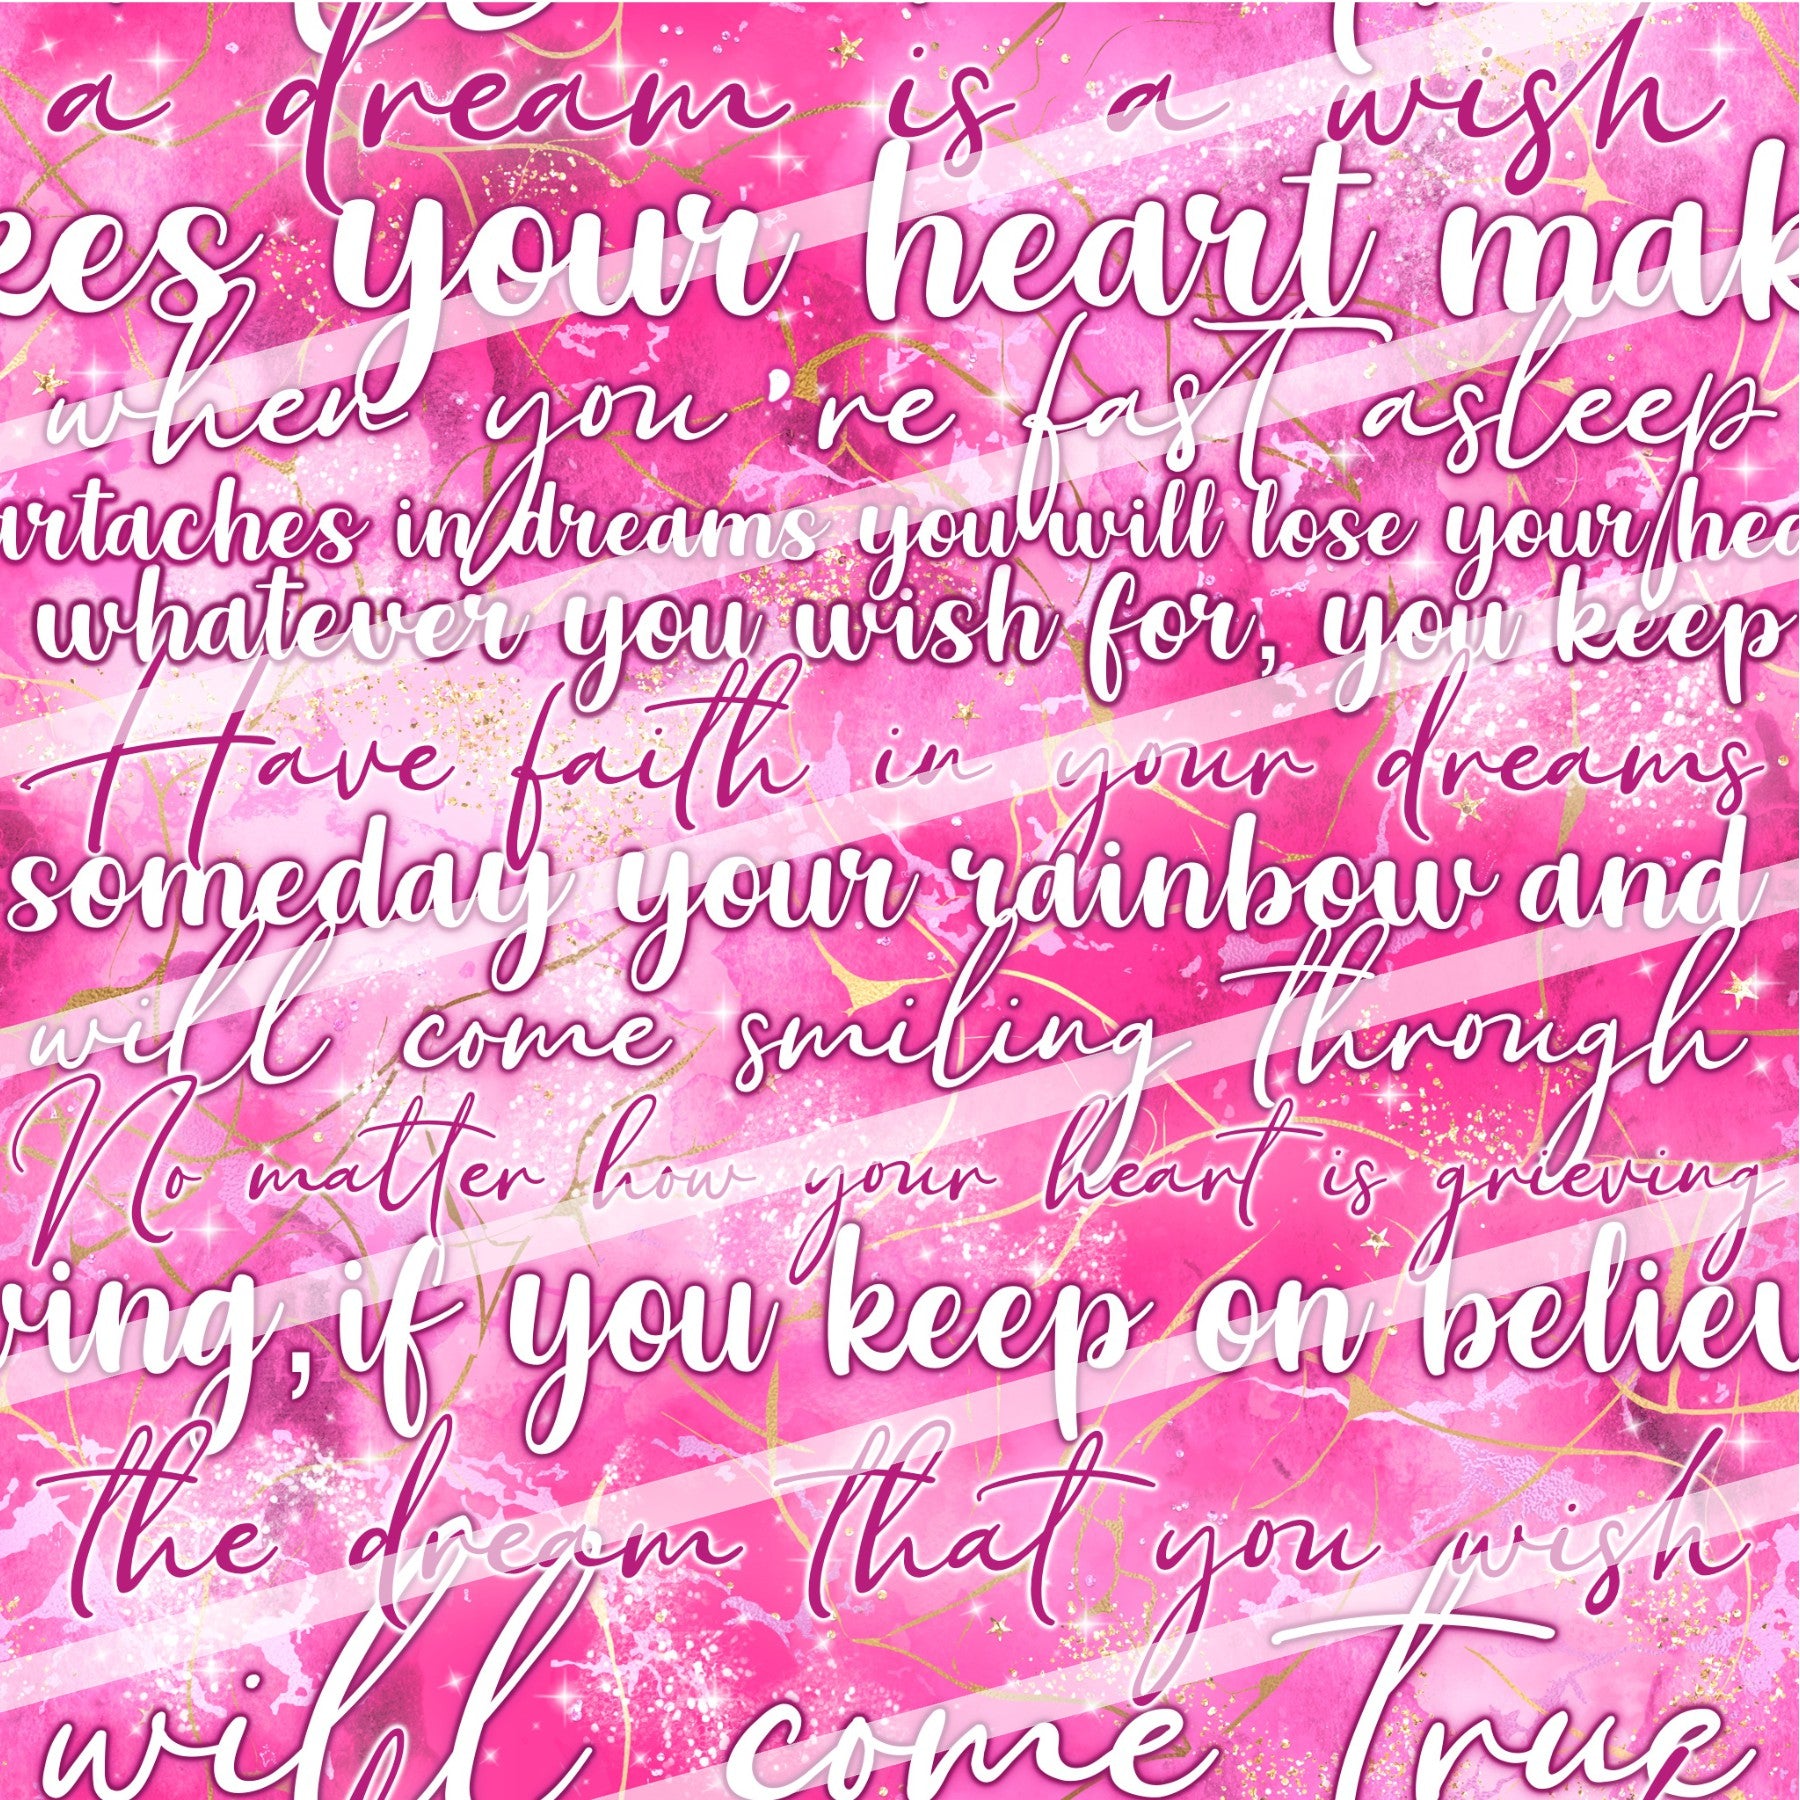 a dream is a wish
kes your heart mak
when you're fast asleep
artaches in dreams you will lose your hea
whatever you wish for, you keep
Have faith in your dreams
someday your rainbow and
will come smiling through
No matter how your heart is grieving
ving, if you keep on believ
the dream that you wish
will come true